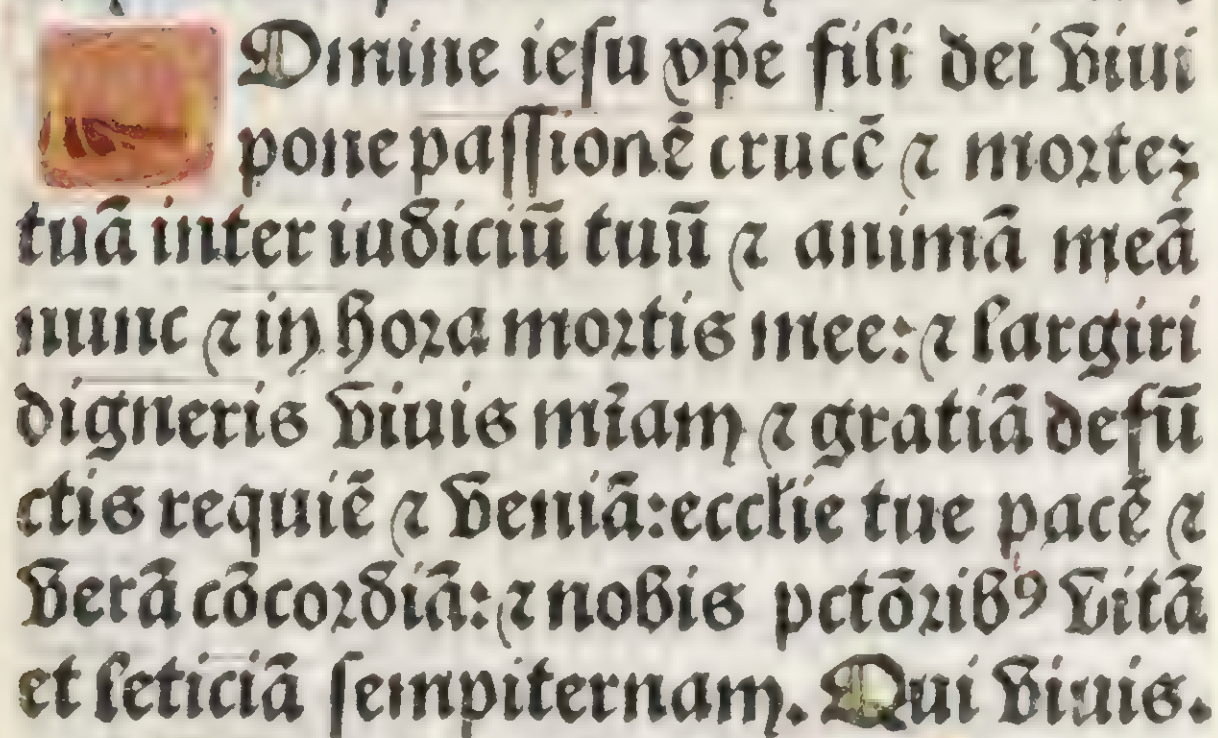 Omine iesu xp̄e fili dei viui
pone passionē crucē ⁊ mortez
tuā inter iudiciū tuū ⁊ animā meā
nunc ⁊ in hora mortis mee: ⁊ largiri
digneris viuis mīam ⁊ gratiā defū
ctis requiē ⁊ veniā: ecclīe tue pacē ⁊
verā cōcordiā: ⁊ nobis pctōribꝰ vitā
et leticiā sempiternam. Qui viuis.